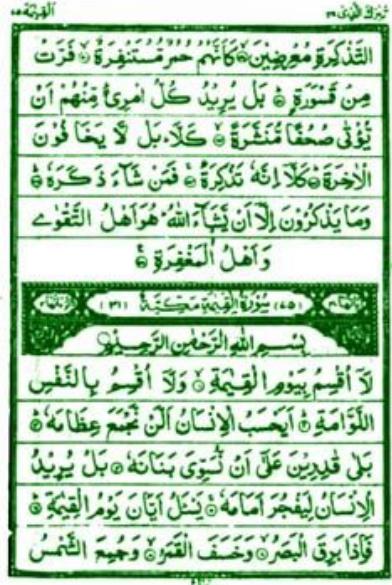 تبٰرك الذى ٢٩
القيٰمة ٧٥
التَّذْكِرَةِ مُعْرِضِيْنَ ۙ كَاَنَّهُمْ حُمُرٌ مُّسْتَنْفِرَةٌ ۙ فَرَّتْ
مِنْ قَسْوَرَةٍ ؕ بَلْ يُرِيْدُ كُلُّ امْرِئٍ مِّنْهُمْ اَنْ
يُّؤْتٰى صُحُفًا مُّنَشَّرَةً ۙ كَلَّا ؕ بَلْ لَّا يَخَافُوْنَ
الْاٰخِرَةَ ؕ كَلَّاۤ اِنَّهٗ تَذْكِرَةٌ ۚ فَمَنْ شَآءَ ذَكَرَهٗ ؕ
وَمَا يَذْكُرُوْنَ اِلَّاۤ اَنْ يَّشَآءَ اللّٰهُ ؕ هُوَ اَهْلُ التَّقْوٰى
وَ اَهْلُ الْمَغْفِرَةِ ۠
(٧٥) سُوْرَةُ الْقِيٰمَةِ مَكِّيَّةٌ (٣١)
بِسْمِ اللّٰهِ الرَّحْمٰنِ الرَّحِيْمِ
لَاۤ اُقْسِمُ بِيَوْمِ الْقِيٰمَةِ ۙ وَلَاۤ اُقْسِمُ بِالنَّفْسِ
اللَّوَّامَةِ ؕ اَيَحْسَبُ الْاِنْسَانُ اَلَّنْ نَّجْمَعَ عِظَامَهٗ ؕ
بَلٰى قٰدِرِيْنَ عَلٰۤى اَنْ نُّسَوِّيَ بَنَانَهٗ ۞ بَلْ يُرِيْدُ
الْاِنْسَانُ لِيَفْجُرَ اَمَامَهٗ ۚ يَسْـَٔلُ اَيَّانَ يَوْمُ الْقِيٰمَةِ ؕ
فَاِذَا بَرِقَ الْبَصَرُ ۙ وَخَسَفَ الْقَمَرُ ۙ وَجُمِعَ الشَّمْسُ